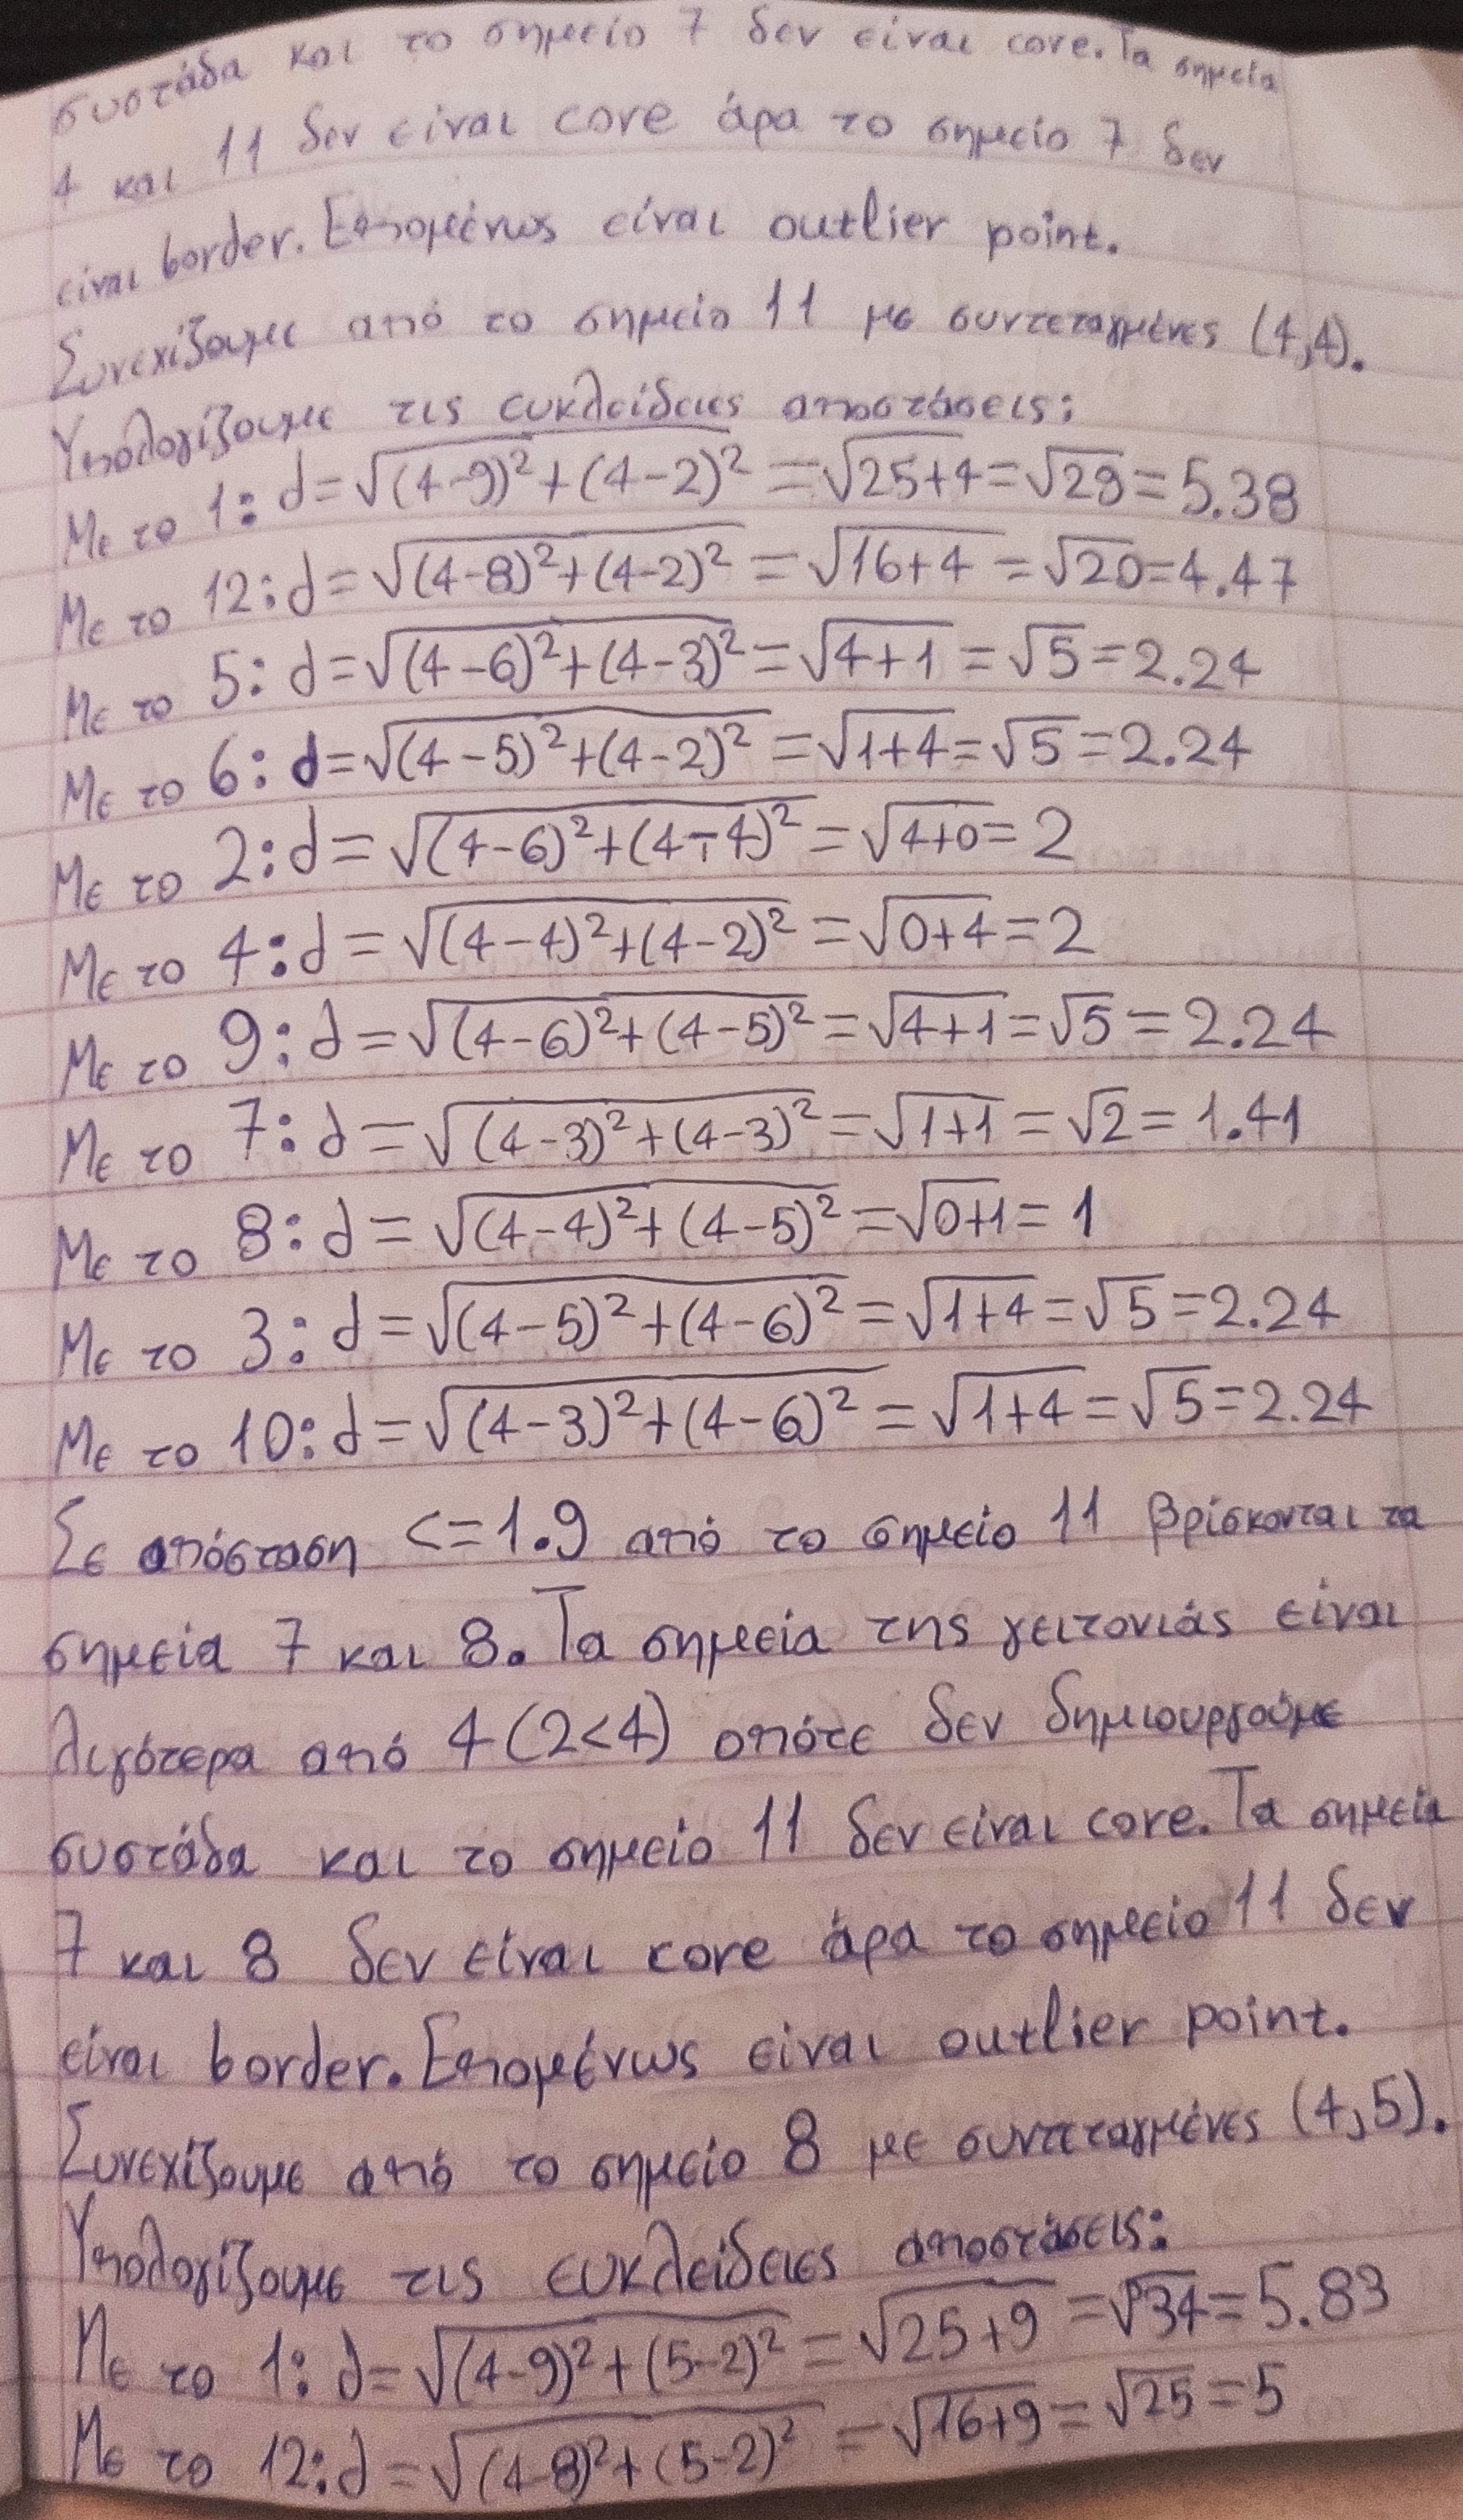 συστάδα και το σημείο 7 δεν είναι core. Τα σημεία
4 και 11 δεν είναι core άρα το σημείο 7 δεν
είναι border. Επομένως είναι outlier point.
Συνεχίζουμε από το σημείο 11 με συντεταγμένες (4,4).
Υπολογίζουμε τις ευκλείδειες αποστάσεις:
Με το 1: d=√(4-9)²+(4-2)² =√25+4=√29=5.38
Με το 12: d=√(4-8)²+(4-2)² =√16+4 =√20=4.47
Με το 5: d=√(4-6)²+(4-3)²=√4+1 =√5=2.24
Με το 6: d=√(4-5)²+(4-2)² =√1+4=√5=2.24
Με το 2: d=√(4-6)²+(4-4)²=√4+0=2
Με το 4: d=√(4-4)²+(4-2)²=√0+4=2
Με το 9: d=√(4-6)²+(4-5)²=√4+1=√5=2.24
Με το 7: d=√(4-3)²+(4-3)²=√1+1=√2=1.41
Με το 8: d=√(4-4)²+(4-5)²=√0+1=1
Με το 3: d=√(4-5)²+(4-6)²=√1+4=√5=2.24
Με το 10: d=√(4-3)²+(4-6)²=√1+4=√5=2.24
Σε απόσταση <=1.9 από το σημείο 11 βρίσκονται τα
σημεία 7 και 8. Τα σημεία της γειτονιάς είναι
λιγότερα από 4 (2<4) οπότε δεν δημιουργούμε
συστάδα και το σημείο 11 δεν είναι core. Τα σημεία
7 και 8 δεν είναι core άρα το σημείο 11 δεν
είναι border. Επομένως είναι outlier point.
Συνεχίζουμε από το σημείο 8 με συντεταγμένες (4,5).
Υπολογίζουμε τις ευκλείδειες αποστάσεις:
Με το 1: d=√(4-9)²+(5-2)²=√25+9=√34=5.83
Με το 12: d=√(4-8)²+(5-2)² =√16+9=√25=5